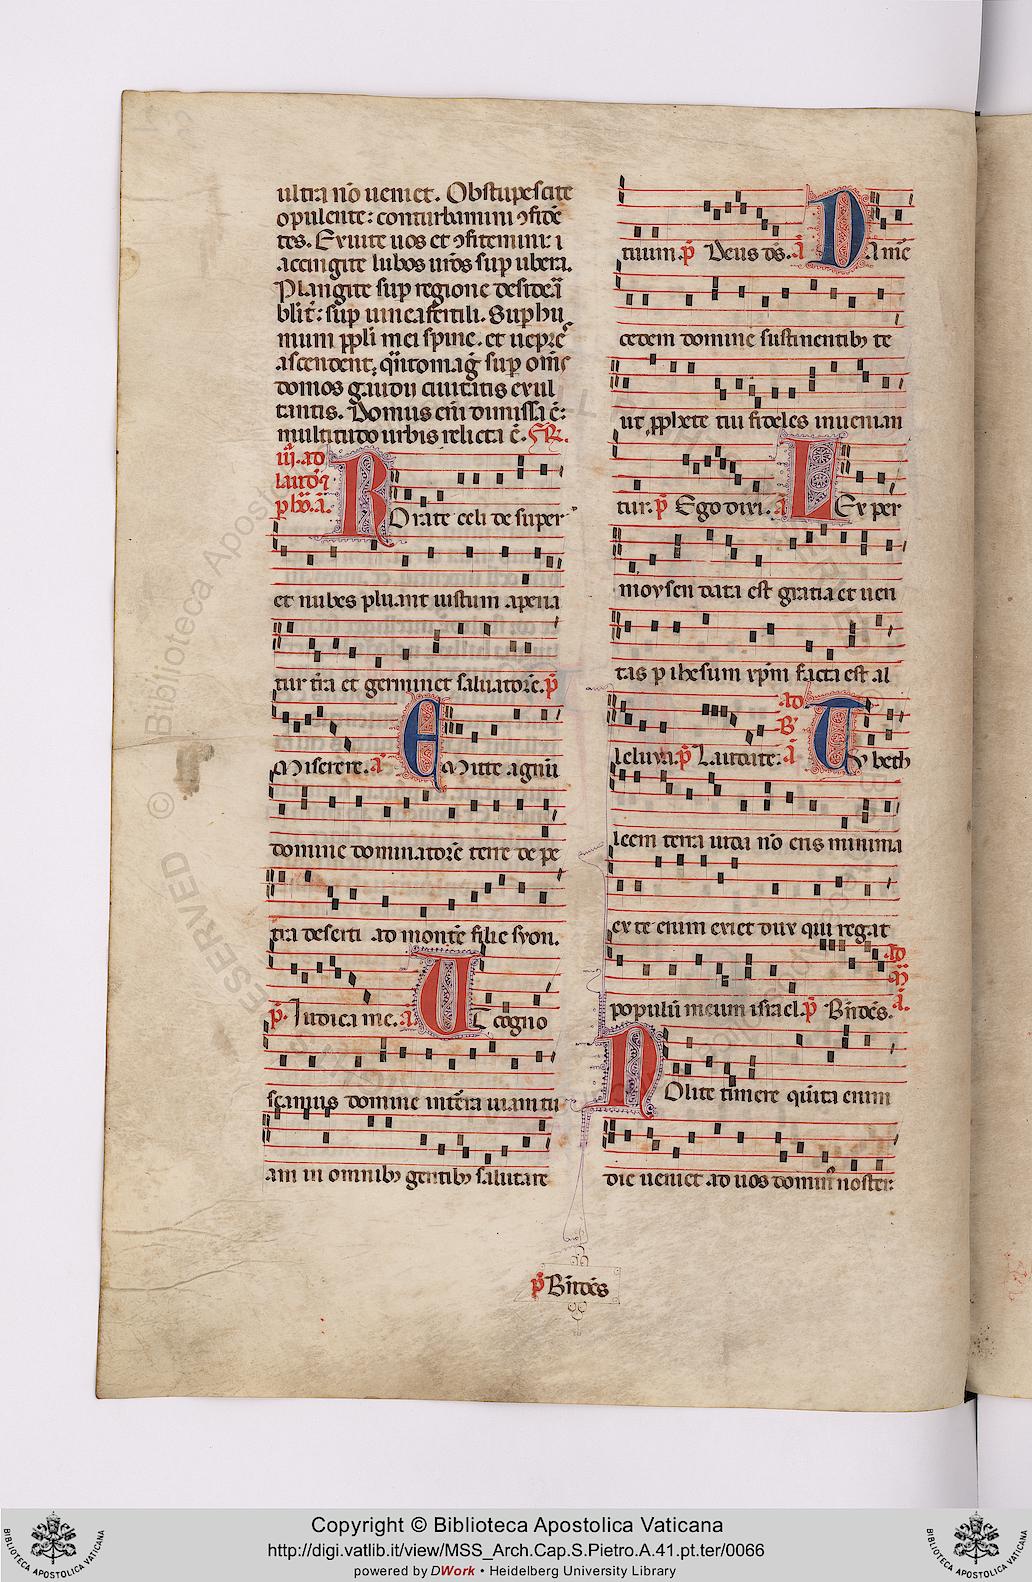 ultra nō ueniet. Obstupescite
opulente: conturbamini ꝯfidē
tes. Exuite uos et ꝯfitemini: ⁊
accingite lūbos uīos sup ubera.
Plangite sup regione desidera
blit̄: sup uinea fertili. Sup hu
mum ppl̄i mei spine. et uepres
ascendent; q̄ntomaḡ sup om̄s
domos gaudii ciuitatis exul
tantis. Domus eni dimissa ē:
multitudo urbis relicta ē. FR.
iiij. ad
laud. ⁊
p hōo. a.
ROrate celi de super
et nubes pluant iustum aperia
tur t̄ra et germinet saluatorē. p̄
Miserere. a. EMitte agnū
domine dominatorē terre de pe
tra deserti ad montē filie syon.
p̄. Iudica me. a. UT cogno
scamus domine int̄ra uiam tu
am in omnibꝫ gentibꝫ salutare
tuum. p̄ Deus ds̄. a DA m̄c
cedem domine sustinentibꝫ te
ut pphete tui fideles inuenian
tur. p̄ Ego dixi. a LEx per
moysen data est gratia et ueri
tas p ihesum xp̄m facta est al
leluya. p̄ Laudate. ad B. a TU beth
leem terra iuda nō eris minima
ex te enim exiet dux qui regat
populū meum israel. p̄ Bn̄dc̄s. ad m̄ a.
NOlite timere quīta enim
die ueniet ad uos domin᷒ noster.
p̄ Bn̄dc̄s
Copyright © Biblioteca Apostolica Vaticana
http://digi.vatlib.it/view/MSS_Arch.Cap.S.Pietro.A.41.pt.ter/0066
powered by DWork • Heidelberg University Library